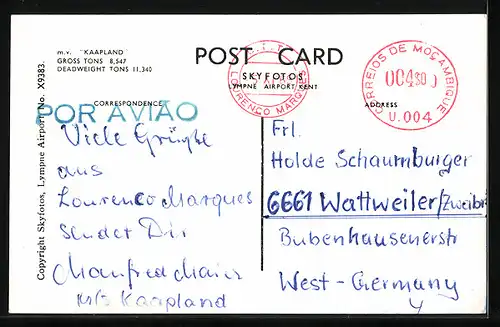 m.v. "KAAPLAND"
GROSS TONS 8,547
DEADWEIGHT TONS 11,340
POST CARD
SKYFOTOS
YMPNE AIRPORT, KENT
LOURENCO MARQUES
CORREIOS DE MOÇAMBIQUE
004$80
U.004
CORRESPONDENCE
ADDRESS
POR AVIÃO
Copyright Skyfotos, Lympne Airport No. X9383.
Viele Grüße
aus
Lourenco Marques
sendet Dir
Manfred Maier
M/S Kaapland
Frl.
Holde Schaumburger
6661 Wattweiler/Zweibr
Bubenhausenerstr
West-Germany